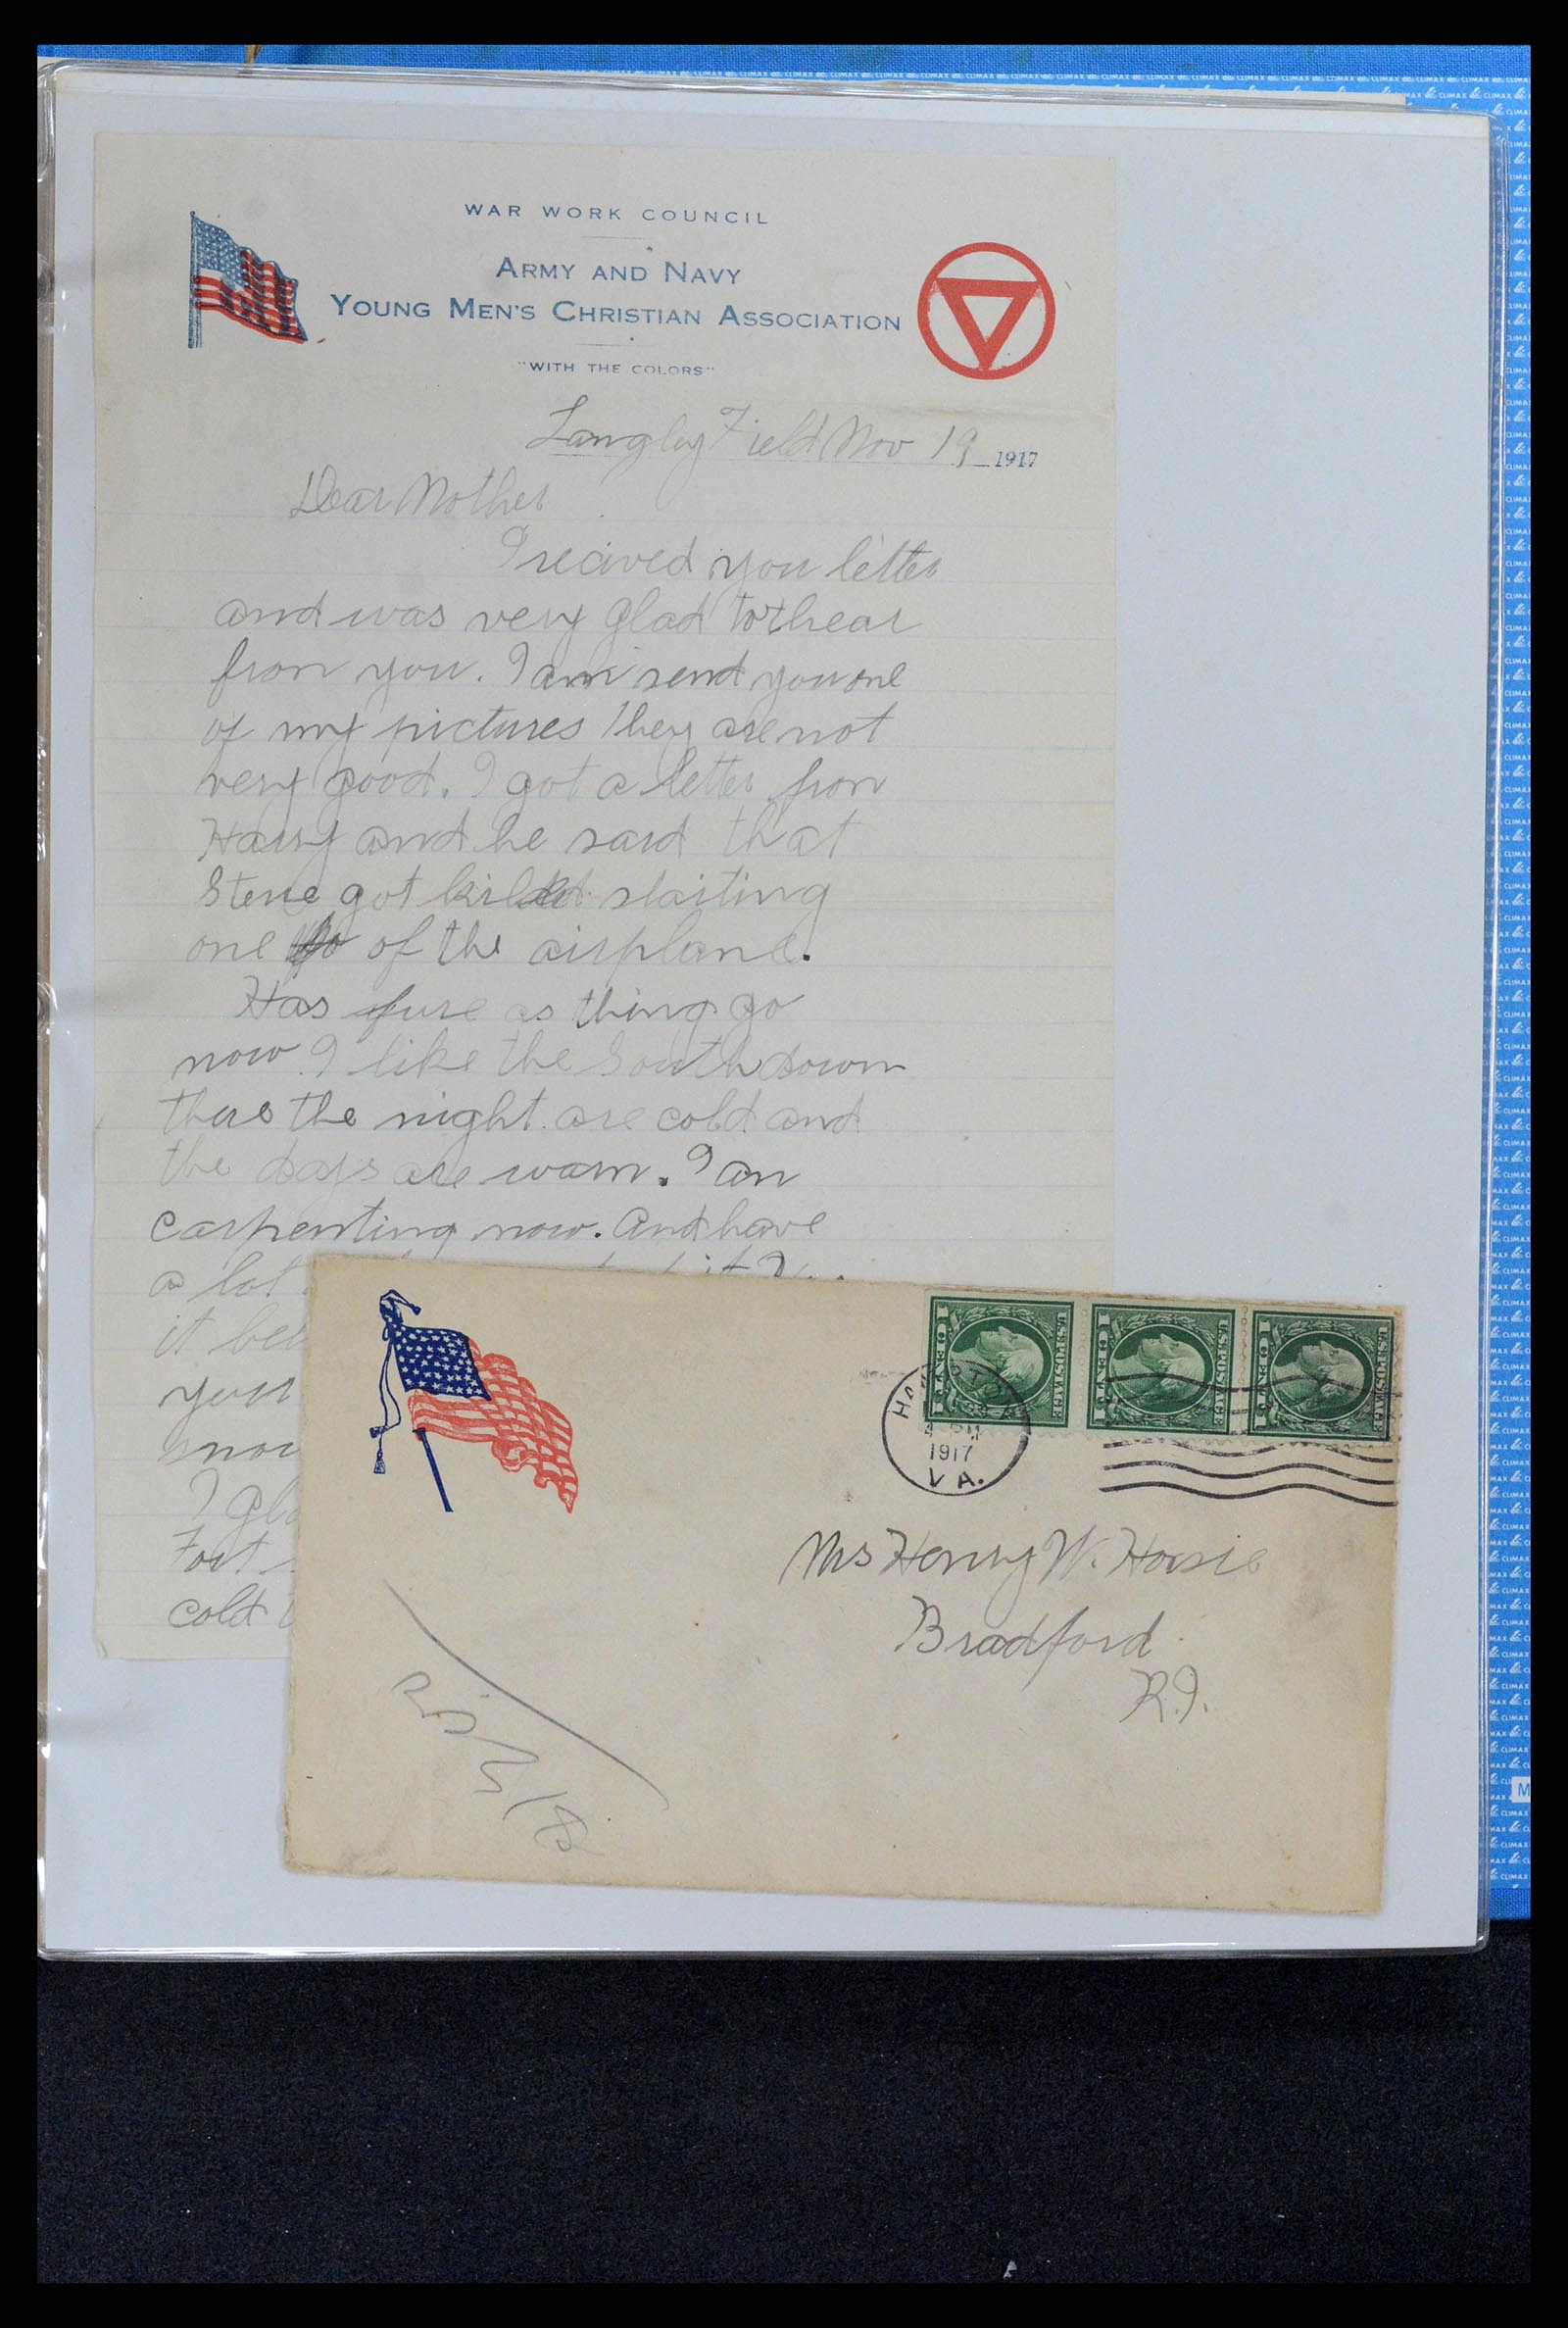 WAR WORK COUNCIL
ARMY AND NAVY
YOUNG MEN'S CHRISTIAN ASSOCIATION
"WITH THE COLORS"
Langley Field Nov 19 1917
Dear Mother
I recived you letter
and was very glad to hear
from you. I am send you one
of my pictures They are not
very good. I got a letter from
Harry and he said that
Steve got killed starting
one of the airplane.
Has fure as thing go
now I like the South down
there the night are cold and
the days are warm. I am
carpenting now. And have
a lot
it
your
snow
I
Fort
cold
U.S. POSTAGE
1 CENT 1
U.S. POSTAGE
1 CENT 1
U.S. POSTAGE
1 CENT 1
4 PM
1917
VA.
Mrs Henry W.
Bradford
R.I.
CLIMAX